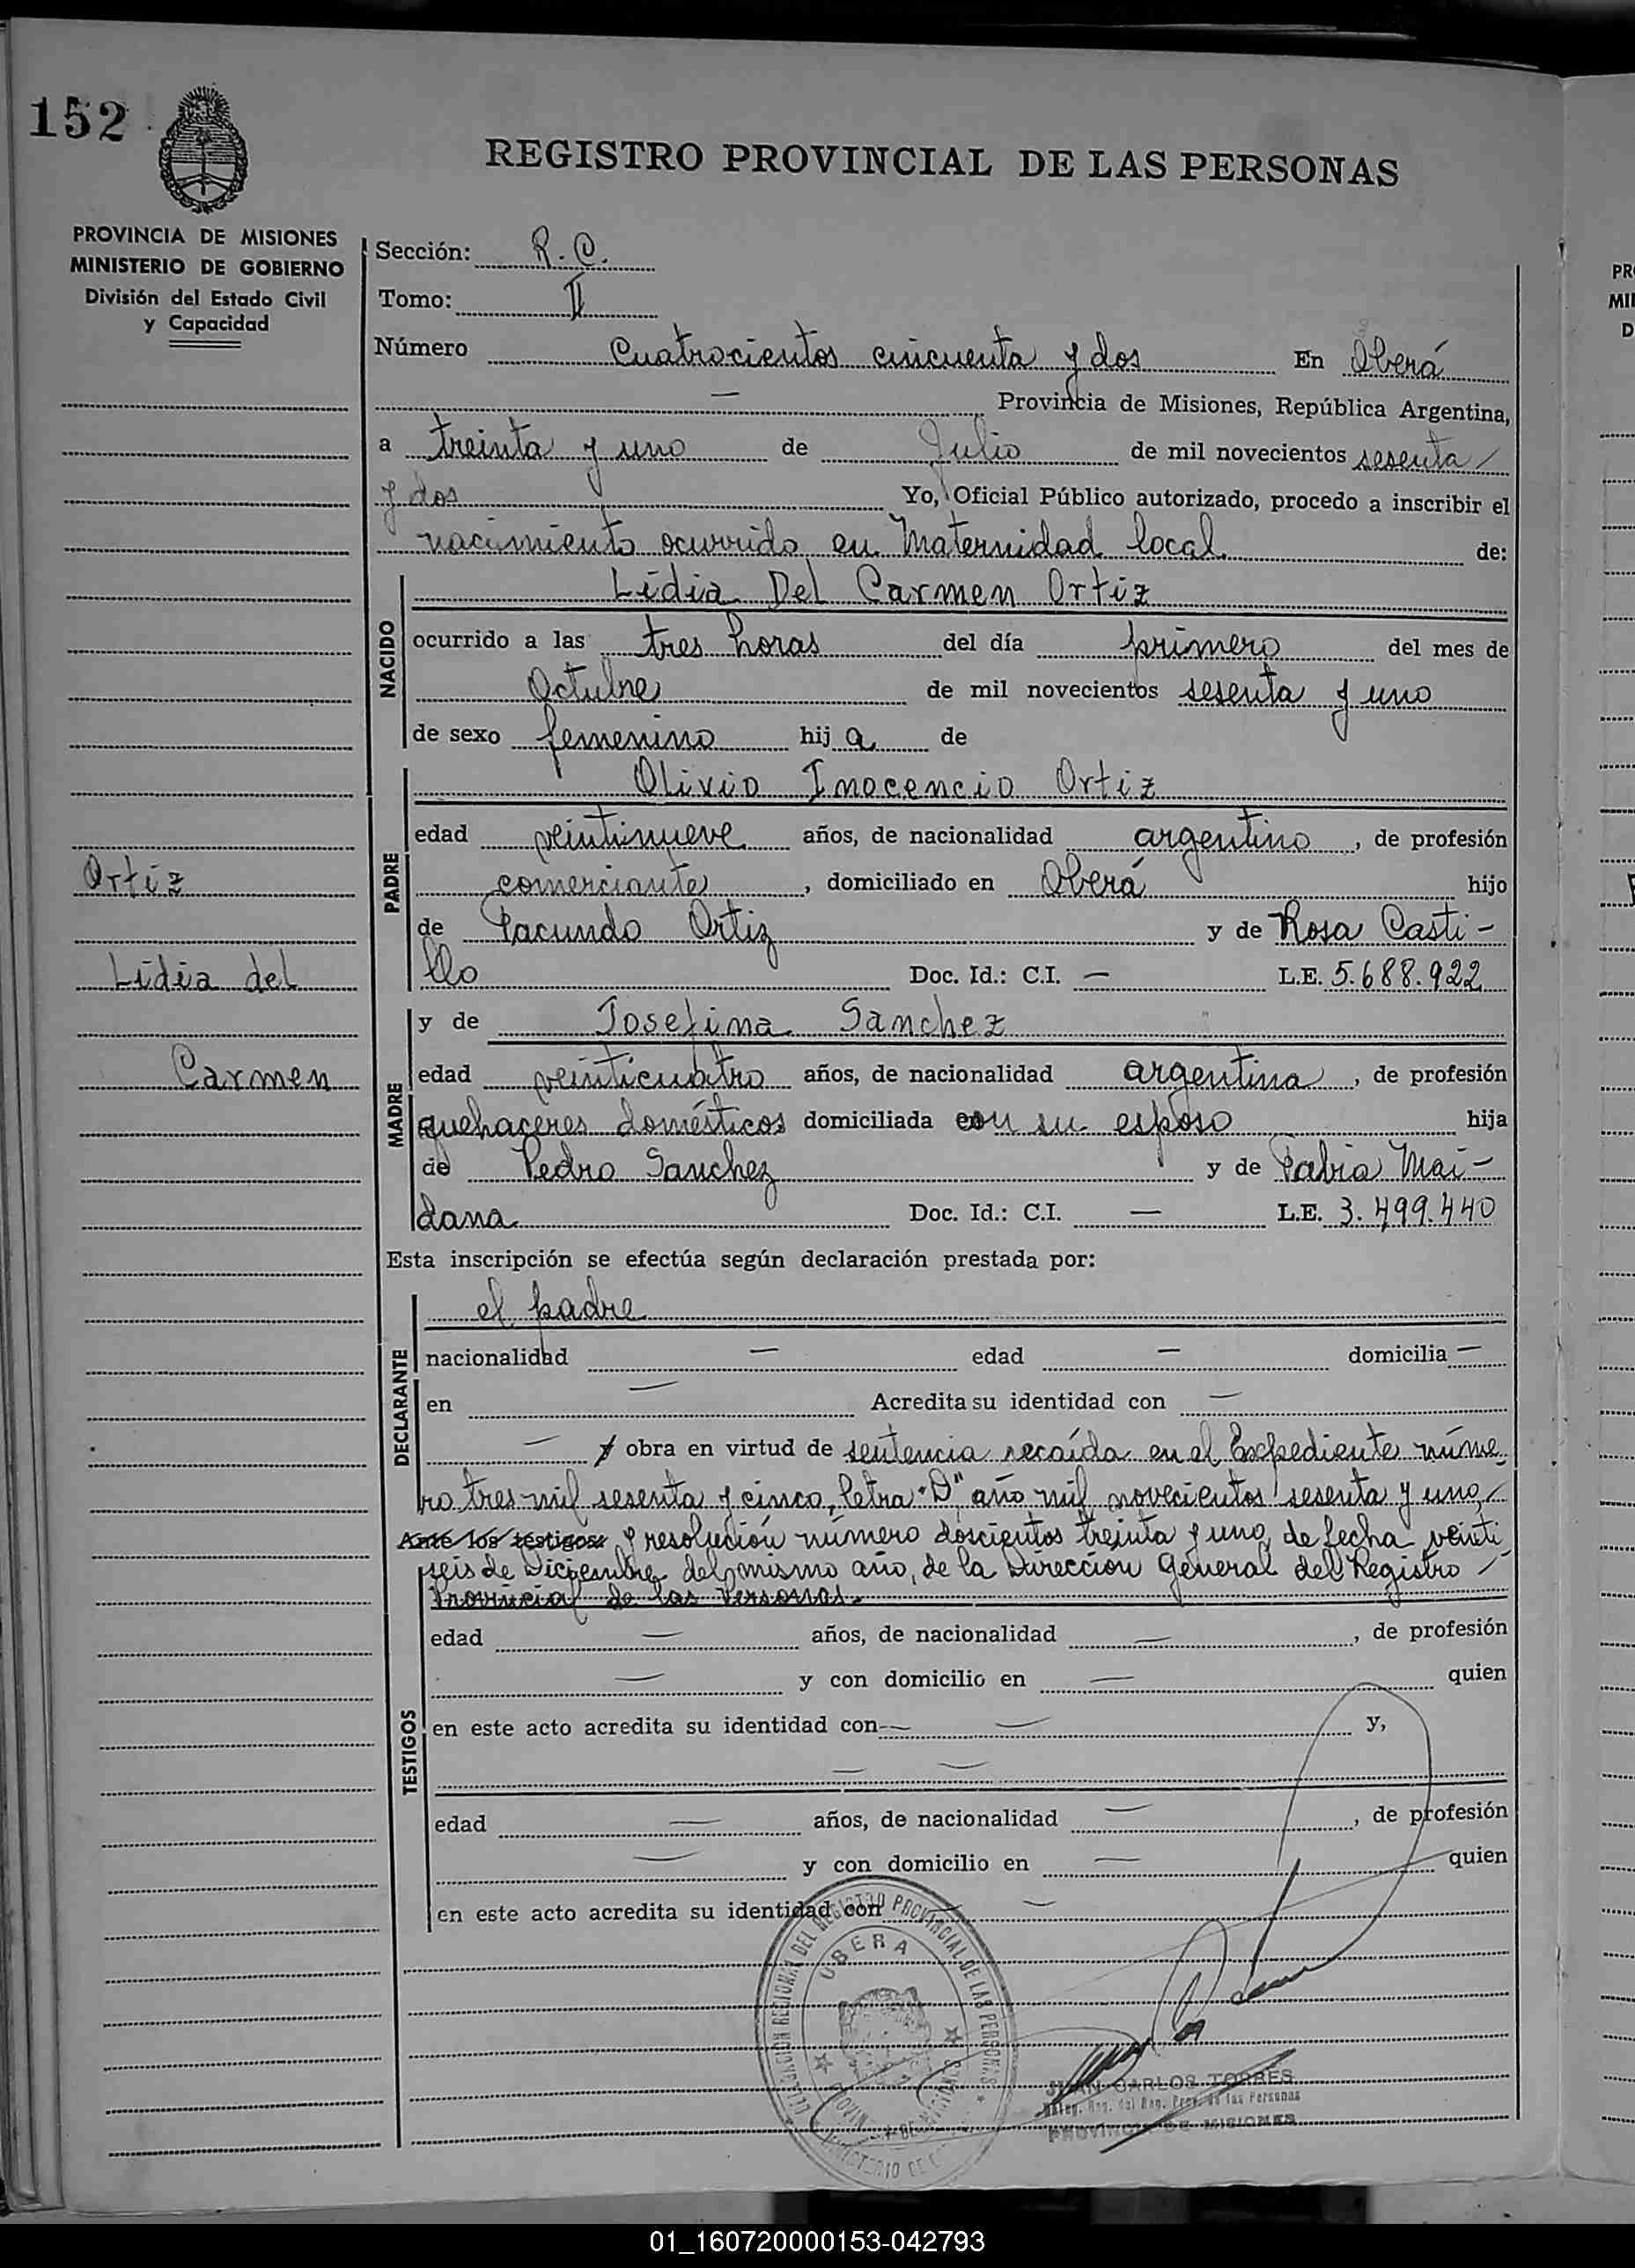 152
REGISTRO PROVINCIAL DE LAS PERSONAS
PROVINCIA DE MISIONES
MINISTERIO DE GOBIERNO
División del Estado Civil
y Capacidad
Sección: R. C.
Tomo: II
Número Cuatrocientos cincuenta y dos En Oberá
— Provincia de Misiones, República Argentina,
a treinta y uno de Julio de mil novecientos sesenta
y dos Yo, Oficial Público autorizado, procedo a inscribir el
nacimiento ocurrido en Maternidad local de:
NACIDO
Lidia Del Carmen Ortiz
ocurrido a las tres horas del día primero del mes de
Octubre de mil novecientos sesenta y uno
de sexo femenino hij a de
PADRE
Olivio Inocencio Ortiz
edad veintinueve años, de nacionalidad argentino, de profesión
comerciante, domiciliado en Oberá hijo
de Facundo Ortiz y de Rosa Casti-
llo Doc. Id.: C.I. — L.E. 5.688.922
Ortiz
Lidia del
Carmen
MADRE
y de Josefina Sanchez
edad veinticuatro años, de nacionalidad argentina, de profesión
quehaceres domésticos domiciliada con su esposo hija
de Pedro Sanchez y de Fabia Mai-
dana Doc. Id.: C.I. — L.E. 3.499.440
Esta inscripción se efectúa según declaración prestada por:
DECLARANTE
el padre
nacionalidad — edad — domicilia —
en — Acredita su identidad con —
— y obra en virtud de sentencia recaída en el Expediente núme
ro tres mil sesenta y cinco, letra "D" año mil novecientos sesenta y uno,
Ante los testigos: y resolución número doscientos treinta y uno, de fecha veinti
seis de Diciembre del mismo año, de la Dirección General del Registro
Provincial de las Personas.
TESTIGOS
edad — años, de nacionalidad —, de profesión
— y con domicilio en — quien
en este acto acredita su identidad con — y,
— —
edad — años, de nacionalidad —, de profesión
— y con domicilio en — quien
en este acto acredita su identidad con —
DELEGACION REGIONAL DEL REGISTRO PROVINCIAL DE LAS PERSONAS
OBERA
JUAN CARLOS TORRES
Deleg. Reg. del Reg. Prov. de las Personas
PROVINCIA DE MISIONES
PR
MI
D
01_160720000153-042793